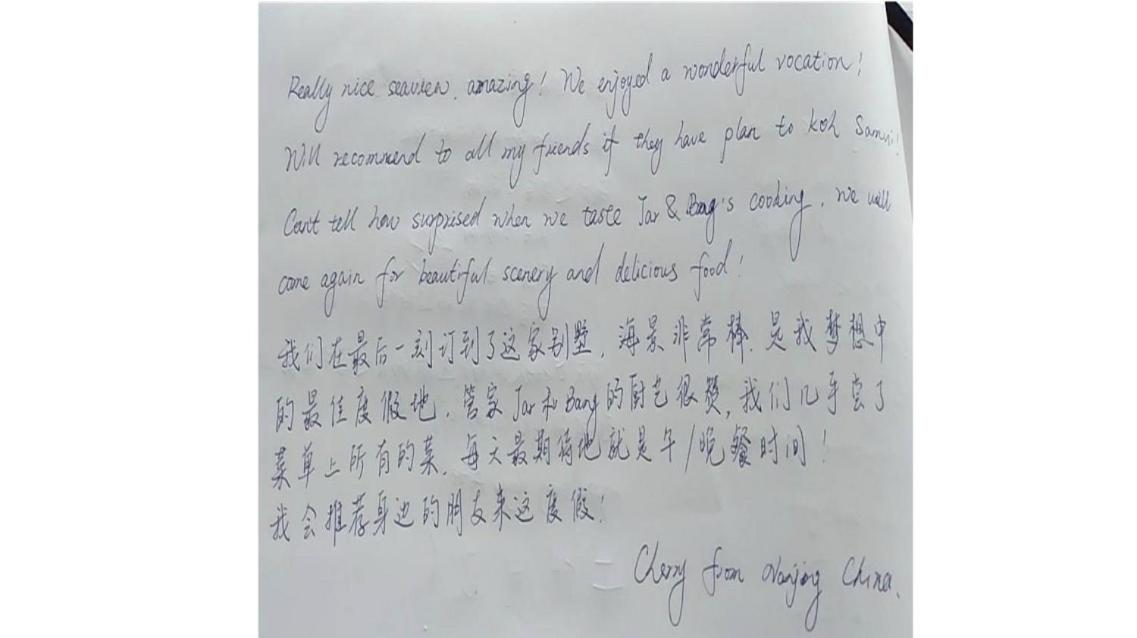 Really nice seaview, amazing! We enjoyed a wonderful vocation!
Will recommend to all my friends if they have plan to Koh Samui!
Can't tell how surprised when we taste Jar & Bang's cooking. We will
come again for beautiful scenery and delicious food!
我们在最后一刻订到了这家别墅，海景非常棒，是我梦想中
的最佳度假地，管家Jar和Bang的厨艺很赞，我们几乎尝了
菜单上所有的菜，每天最期待地就是午/晚餐时间！
我会推荐身边的朋友来这度假！
Cherry from Nanjing China.